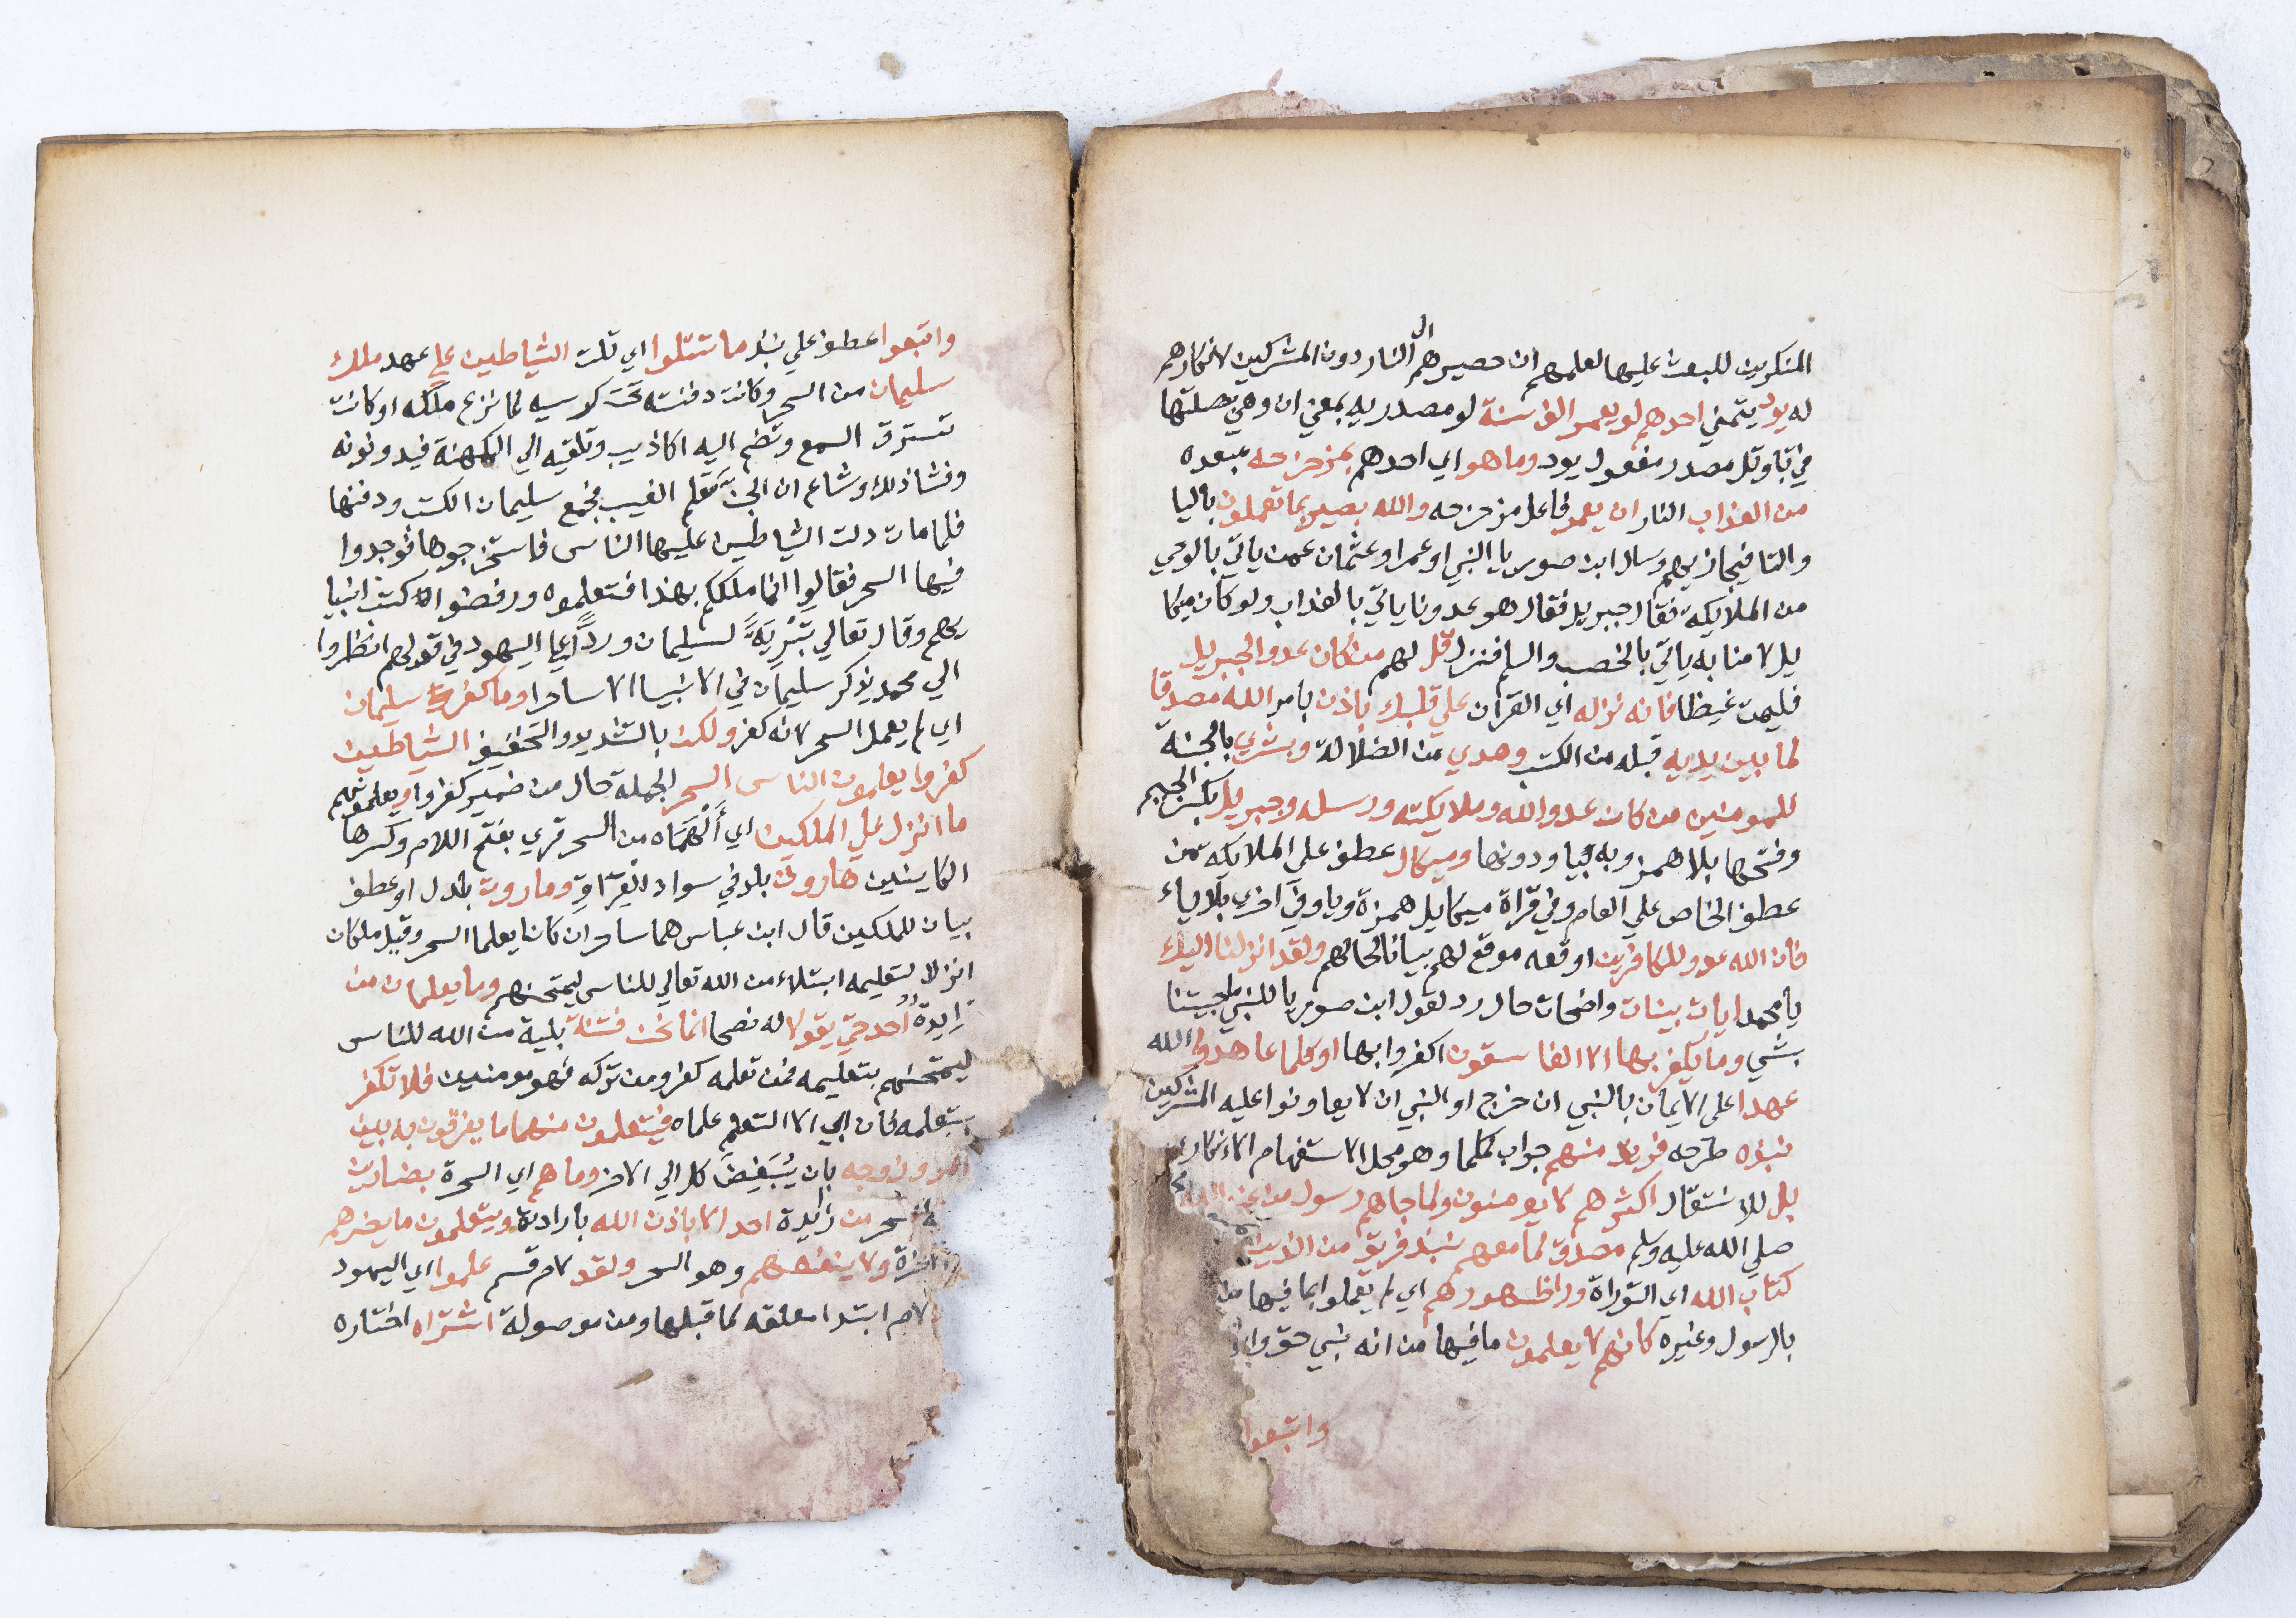 المنكرين للبعث عليها لعلمهم ان مصيرهم الي النار دون المشركين لانكارهم
له يود يتمني احدهم لو يعمر الف سنة لو مصدريه بمعني ان وهي بصلتها
في تاويل مصدر مفعول يود وما هو اي احدهم بمزحزحه مبعده
من العذاب النار ان يعمر فاعل مزحزحه والله بصير بما تعملون باليا
والتا فيجازيهم وسال ابن صوريا النبي او عمر او عثمان عمن ياتي بالوحي
من الملايكة فقال جبريل فقال هو عدونا ياتي بالعذاب ولو كان ميكا
يل لامنا به ياتي بالخصب والسلم فنزل قل لهم من كان عدوا لجبريل
فليمت غيظا فانه نزله اي القران علي قلبك باذن بامر الله مصدقا
لما بين يديه قبله من الكتب وهدي من الضلالة وبشري بالجنة
للمومنين من كان عدوا لله وملايكته ورسله وجبريل بكسر الجيم
وفتحها بلا همز وبه بيا ودونها وميكال عطف علي الملايكة من
عطف الخاص علي العام وفي قراة ميكايل همزة ويا وفي اخري بلا ياء
فان الله عدو للكافرين اوقعه موقع لهم بيانا لحالهم ولقد انزلنا اليك
يا محمد ايات بينات واضحات حال رد لقول ابن صوريا للنبي ما جيتنا
بشي وما يكفر بها الا الفاسقون اكفروا بها او كلما عاهدوا الله
عهدا علي الايمان بالنبي ان خرج او النبي ان لا يعاونوا عليه المشركين
نبذه طرحه فريق منهم جواب كلما وهو محل الاستفهام الانكاري
بل للانتقال اكثرهم لا يومنون ولما جاهم رسول من عند الله
صلي الله عليه وسلم مصدق لما معهم نبذ فريق من الذين
كتاب الله اي التوراة ورا ظهورهم اي لم يعملوا بما فيها من
بالرسول وغيره كانهم لا يعلمون ما فيها من انه نبي حق
واتبعوا
واتبعوا عطف علي نبذ ما تتلوا اي تلت الشياطين علي عهد ملك
سليمان من السحر وكانت دفنته تحت كرسيه لما نزع ملكه او كانت
تسترق السمع وتضم اليه اكاذيب وتلقيه الي الكهنة فيدونونه
وفشا ذلك وشاع ان الجن تعلم الغيب فجمع سليمان الكتب ودفنها
فلما مات دلت الشياطين عليها الناس فاستخرجوها فوجدوا
فيها السحر فقالوا انما ملككم بهذا فتعلموه ورفضوا كتب انبيا
يهم وقال تعالي تبرية لسليمان وردا علي اليهود في قولهم انظروا
الي محمد يذكر سليمان في الانبيا الا ساحرا وما كفر سليمان
اي لم يعمل السحر لانه كفر ولكن بالتشديد والتخفيف الشياطين
كفروا يعلمون الناس السحر الجملة حال من ضمير كفروا ويعلمونهم
ما انزل علي الملكين اي الهماه من السحر قري بفتح اللام وكسرها
الكاينين هاروت بلد في سواد العراق وماروت بدل او عطف
بيان للملكين قال ابن عباس هما ساحران كانا يعلما السحر وقيل ملكان
انزلا لتعليمه ابتلاء من الله تعالي للناس ليمتحنهم وما يعلمان من
زايدة احد حتي يقولا له نصحا انما نحن فتنة بلية من الله للناس
ليمتحنهم بتعليمه فمن تعلمه كفر ومن تركه فهو مومنين فلا تكفر
بتعلمه فان ابي الا التعلم علماه فيتعلمون منهما ما يفرقون به بين
المر وزوجه بان يبغض كلا الي الاخر وما هم اي السحرة بضارين
به السحر من زايدة احد الا باذن الله بارادته ويتعلمون ما يضرهم
الاخرة ولا ينفعهم وهو السحر ولقد لام قسم علموا اي اليهود
لام ابتدا معلقه لما قبلها ومن موصولة اشتراه اختاره